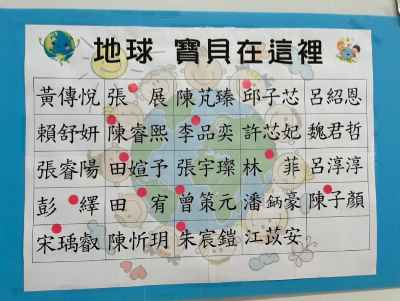 地球 寶貝在這裡
黃傳悅 張 展 陳芃臻 邱子芯 呂紹恩
賴舒妍 陳睿熙 李品奕 許芯妃 魏君哲
張睿陽 田媗予 張宇璨 林 菲 呂淳淳
彭 繹 田 宥 曾策元 潘鈵豪 陳子顏
宋瑀叡 陳忻玥 朱宸鎧 江苡安